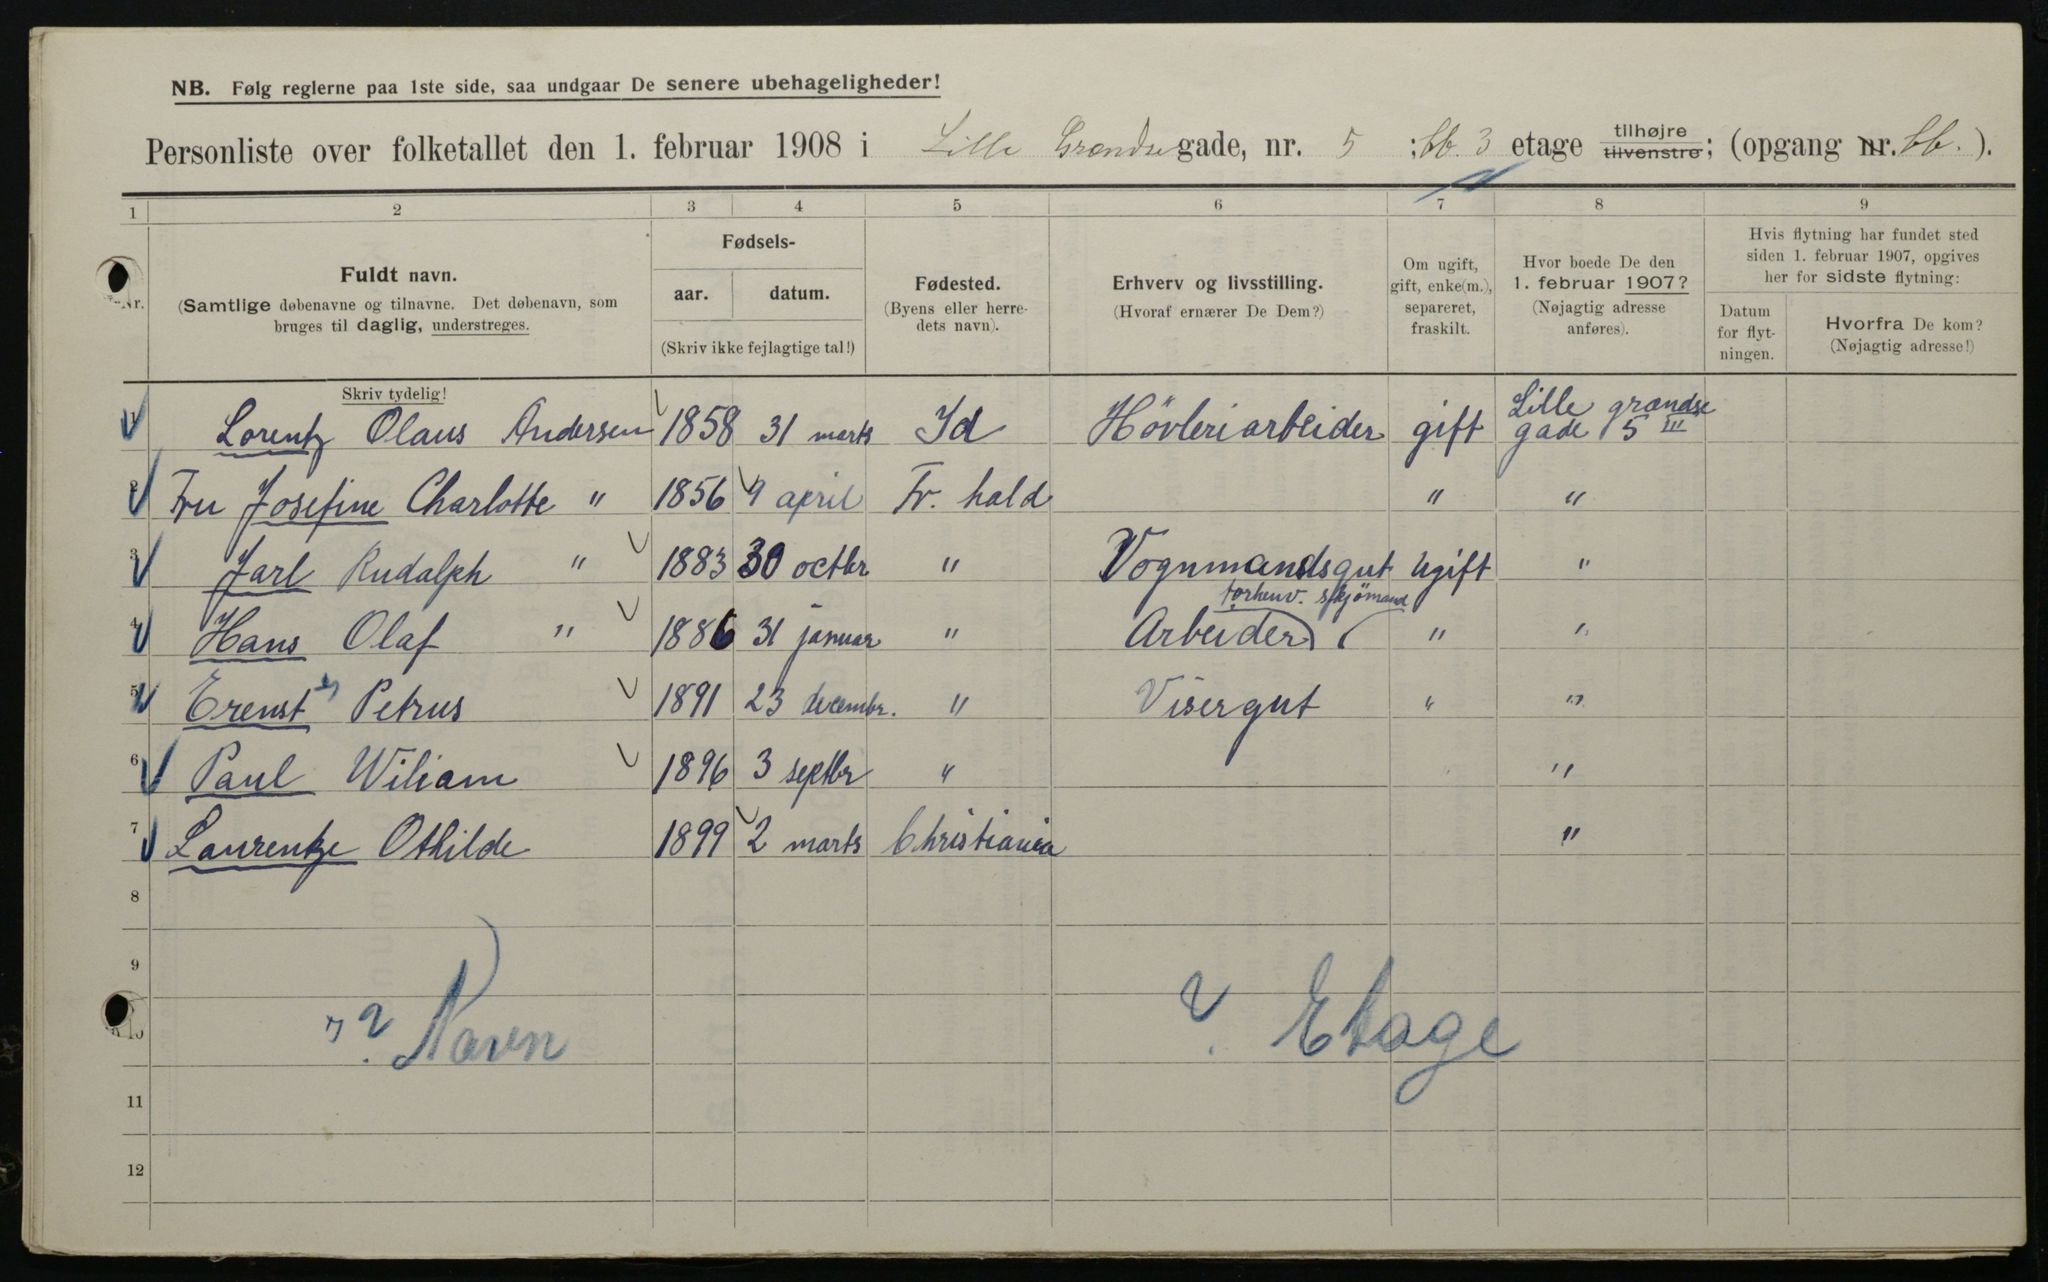 NB. Følg reglerne paa 1ste side, saa undgaar De senere ubehageligheder!
Personliste over folketallet den 1. februar 1908 i Lille Grændsegade, nr. 5 ; bb. 3 etage tilhøjre tilvenstre; (opgang nr. bb. ).
1 2 3 4 5 6 7 8 9
Nr.
Fuldt navn.
(Samtlige døbenavne og tilnavne. Det døbenavn, som
bruges til daglig, understreges.
Skriv tydelig!
Fødsels-
aar. datum.
(Skriv ikke fejlagtige tal!)
Fødested.
(Byens eller herre-
dets navn).
Erhverv og livsstilling.
(Hvoraf ernærer De Dem?)
Om ugift,
gift, enke(m.),
separeret,
fraskilt.
Hvor boede De den
1. februar 1907?
(Nøjagtig adresse
anføres).
Hvis flytning har fundet sted
siden 1. februar 1907, opgives
her for sidste flytning:
Datum
for flyt-
ningen.
Hvorfra De kom?
(Nøjagtig adresse!)
1 Lorentz Olaus Andersen 1858 31 marts Id Hövleriarbeider gift Lille grændse
gade 5 III
2 Fru Josefine Charlotte " 1856 9 april Fr. hald " "
3 Jarl Rudalph " 1883 30 octbr " Vognmandsgut ugift "
forhenv. sjömand
4 Hans Olaf " 1886 31 januar " Arbeider " "
5 Erenst Petrus 1891 23 decembr. " Visergut " "
6 Paul Wiliam 1896 3 septbr " "
7 Laurentze Othilde 1899 2 marts Christiania "
8
9
10
? Navn
? Etage
11
12